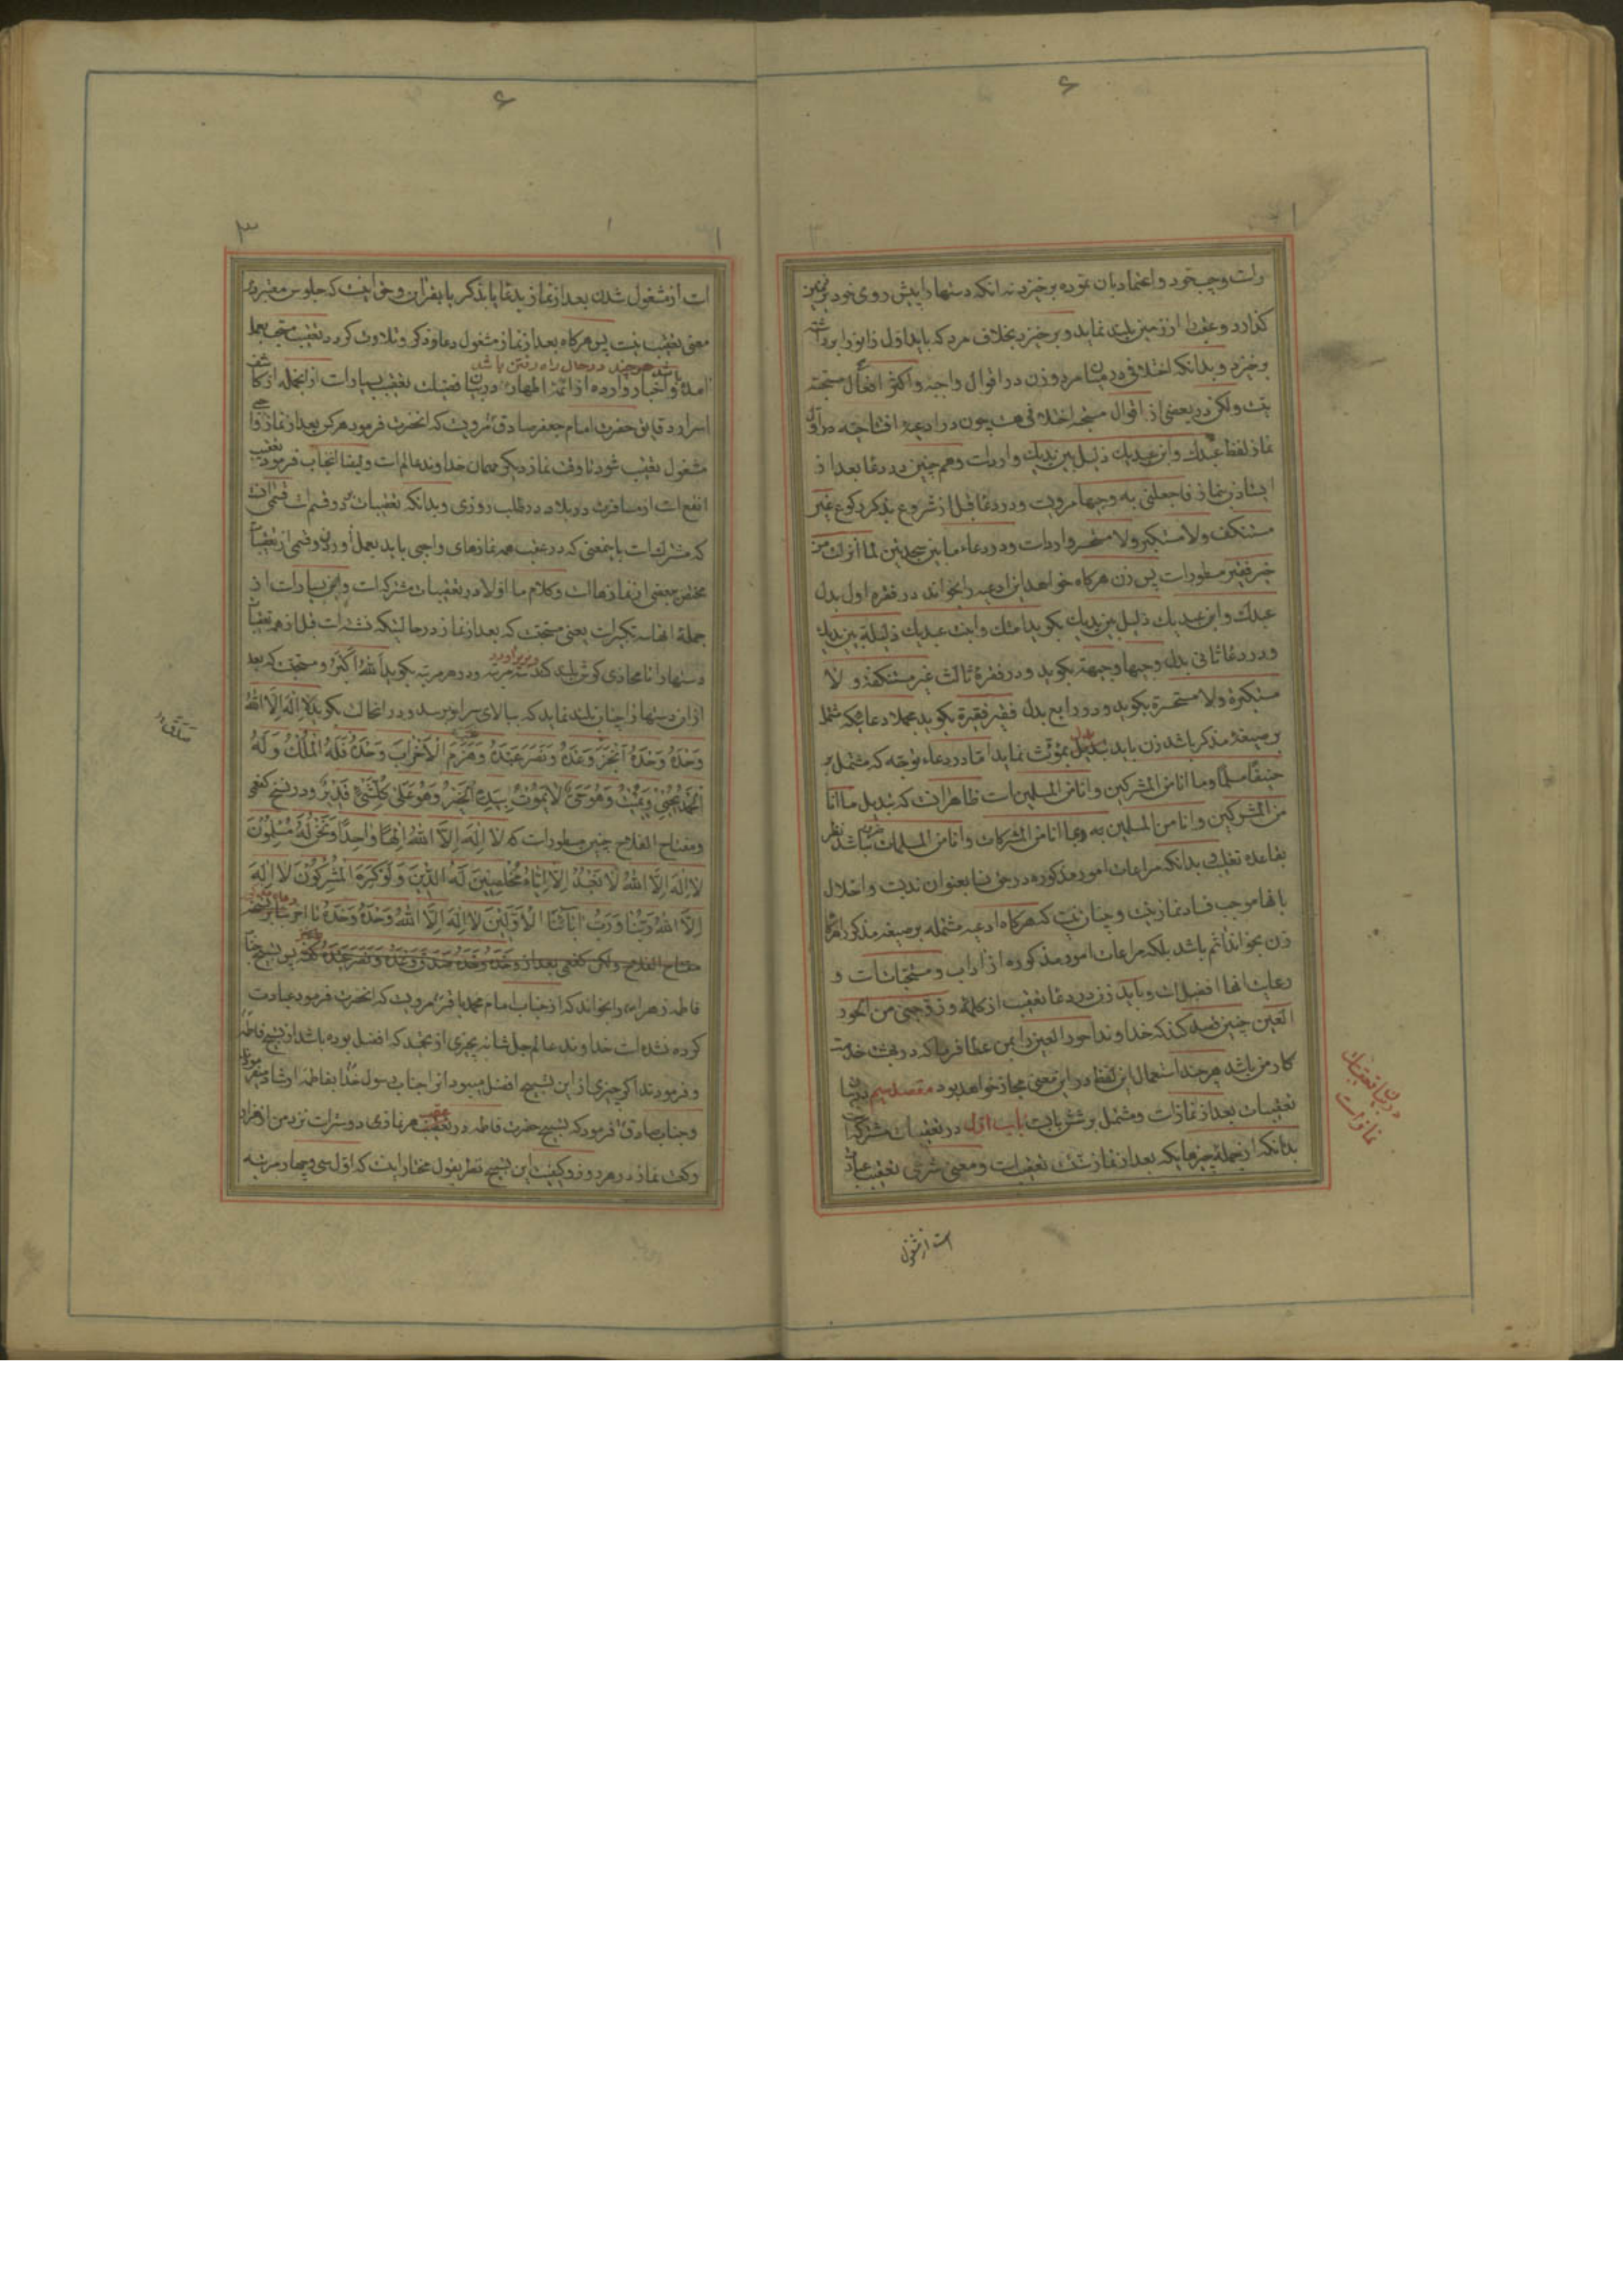 ۶
راست و چپ خود و اعتماد بان نموده برخیزد نه انکه دستها را پیش روی خود بر زمین
کذارد و عقب را از زمین بلند نماید و برخیزد بخلاف مرد که باید اول زانو را برداشته
برخیزد و بدانکه اختلافی در میان مرد و زن در اقوال واجبه و اکثر افعال مستحبه
نیست ولکن در بعضی از اقوال مستحبه اختلافی هست چون در ادعیه افتتاحیه در اول
نماز لفظ عبدك وابن عبدیك ذلیل بین یدیك وارد است و هم چنین در دعا بعد از
نماز فاجعلنی به وجیها مرویست و در دعا قبل از شروع بذکر رکوع غیر
مستنکف ولا مستکبر ولا مستحسر وارد است و در دعاء ما بین سجدتین لما انزلت من
خیر فقیر مسطور است پس زن هرکاه خواهد این ادعیه را بخواند در فقره اول بدل
عبدك وابن عبدیك ذلیل بین یدیك بکوید امتك وابنت عبدیك ذلیلة بین یدیك
و در دعا ثانی بدل وجیها وجیهة بکوید و در فقرهٔ ثالث غیر مستنکفة و لا
مستکبرة ولا مستحسرة بکوید و در رابع بدل فقیر فقیرة بکوید مجملا دعائیکه مشتمل
بر صیغهٔ مذکر باشد زن باید تبدیل بمؤنث نماید اما در دعاء توجه که مشتمل بر
حنیفا مسلما وما انا من المشرکین وانا من المسلمین است ظاهر انست که تبدیل ما انا
من المشرکین وانا من المسلمین به وما انا من المشرکات وانا من المسلمات نباشد نظر
بقاعده تغلیب بدانکه مراعات امور مذکوره در حق نسا بعنوان ندبست و اخلال
بانها موجب فساد نماز نیست و چنان نیست که هرکاه ادعیه مشتمله بر صیغه مذکر را هرکاه
زن بخواند اثم باشد بلکه مراعات امور مذکوره از اداب و مستحبات است و
رعایت انها افضل است و باید زن در دعا تعقیب از کلمهٔ و زوجنی من الحور
العین چنین قصد کند که خداوندا حور العین را بمن عطا فرما که در بهشت خدمت
کار من باشد هرچند استعمال این لفظ در این معنی مجاز خواهد بود مقصد سیم در بیان
تعقیبات بعد از نماز است و مشتمل بر شش بابست باب اول در تعقیبات مشترکه
بدانکه از جمله چیزهائیکه بعد از نماز سنت تعقیب است و معنی شرعی تعقیب عبارت
در بیان تعقیبات نماز است
است از مشغول
۶
است از مشغول شدن بعد از نماز بدعا یا بذکر یا بقران و حق اینست که جلوس معتبر در
معنی تعقیب نیست پس هرکاه بعد از نماز مشغول دعا و ذکر و تلاوت کردد تعقیب مستحب بعمل
باشد هرچند در حال راه رفتن باشد
امده و اخبار وارده از ائمهٔ اطهار در بیان فضیلت تعقیب بسیار است از انجمله از کاشف
اسرار دقایق حضرت امام جعفر صادق مرویست که انحضرت فرمود هرکس بعد از نماز واجبی
مشغول تعقیب شود تا وقت نماز دیکر مهمان خداوند عالم است و ایضا انجناب فرمود تعقیب
انفع است از مسافرت در بلاد در طلب روزی و بدانکه تعقیبات بر دو قسم است قسمی انست
که مشترك است بانمعنی که در عقب همه نمازهای واجبی باید بعمل اورد و قسمی از تعقیبات
مختص ببعضی از نمازها است و کلام ما اولا در تعقیبات مشترکست و این بسیار است از
جملهٔ انها سه تکبیر است یعنی مستحبست که بعد از نماز در حالتیکه نشسته است قبل از همه تعقیبات
دستها را تا محاذی کوش بلند کند سه مرتبه و در هر مرتبه بکوید اَللّٰهُ اَکْبَرُ و مستحبست که بعد
و زیر اورد
از این دستها را چنان بلند نماید که ببالای سر او برسد و در انحالت بکوید لا اِلٰهَ اِلَّا اللّٰهُ
وَحْدَهُ وَحْدَهُ اَنْجَزَ وَعْدَهُ وَنَصَرَ عَبْدَهُ وَهَزَمَ الْاَحْزابَ وَحْدَهُ فَلَهُ الْمُلْكُ وَلَهُ
الْحَمْدُ یُحْیِی وَیُمیتُ وَهُوَ حَیٌّ لایَمُوتُ بِیَدِهِ الْخَیْرُ وَهُوَ عَلیٰ کُلِّ شَیْءٍ قَدیرٌ و در نسخ کفعمی
و مفتاح الفلاح چنین مسطور است که لا اِلٰهَ اِلَّا اللّٰهُ اِلٰهًا واحِدًا وَنَحْنُ لَهُ مُسْلِمُونَ
لا اِلٰهَ اِلَّا اللّٰهُ لا نَعْبُدُ اِلَّا اِیّاهُ مُخْلِصینَ لَهُ الدّینَ وَلَوْ کَرِهَ الْمُشْرِکُونَ لا اِلٰهَ
اِلَّا اللّٰهُ رَبُّنا وَرَبُّ اٰبآئِنَا الْاَوَّلینَ لا اِلٰهَ اِلَّا اللّٰهُ وَحْدَهُ وَحْدَهُ تا اخر
مفتاح الفلاح ولکن کفعمی بعد از وَحْدَهُ وَحْدَهُ وَحْدَهُ صَدَقَ وَعْدَهُ وَنَصَرَ عَبْدَهُ کفته پس تسبیح جناب
فاطمه زهرا را بخواند که از جناب امام محمد باقر مرویست که انحضرت فرمود عبادت
کرده نشده است خداوند عالم جل شانه بچیزی از تحمید که افضل بوده باشد از تسبیح فاطمه
و فرمودند اکر چیزی از این تسبیح افضل میبود انرا جناب رسول خدا بفاطمه ارشاد میفرمود
و جناب صادق فرمود که تسبیح حضرت فاطمه در عقب هر نمازی دوستر است نزد من از هزار
رکعت نماز در هر روز و کیفیت این تسبیح نظر بقول مختار اینست که اول سی و چهار مرتبه